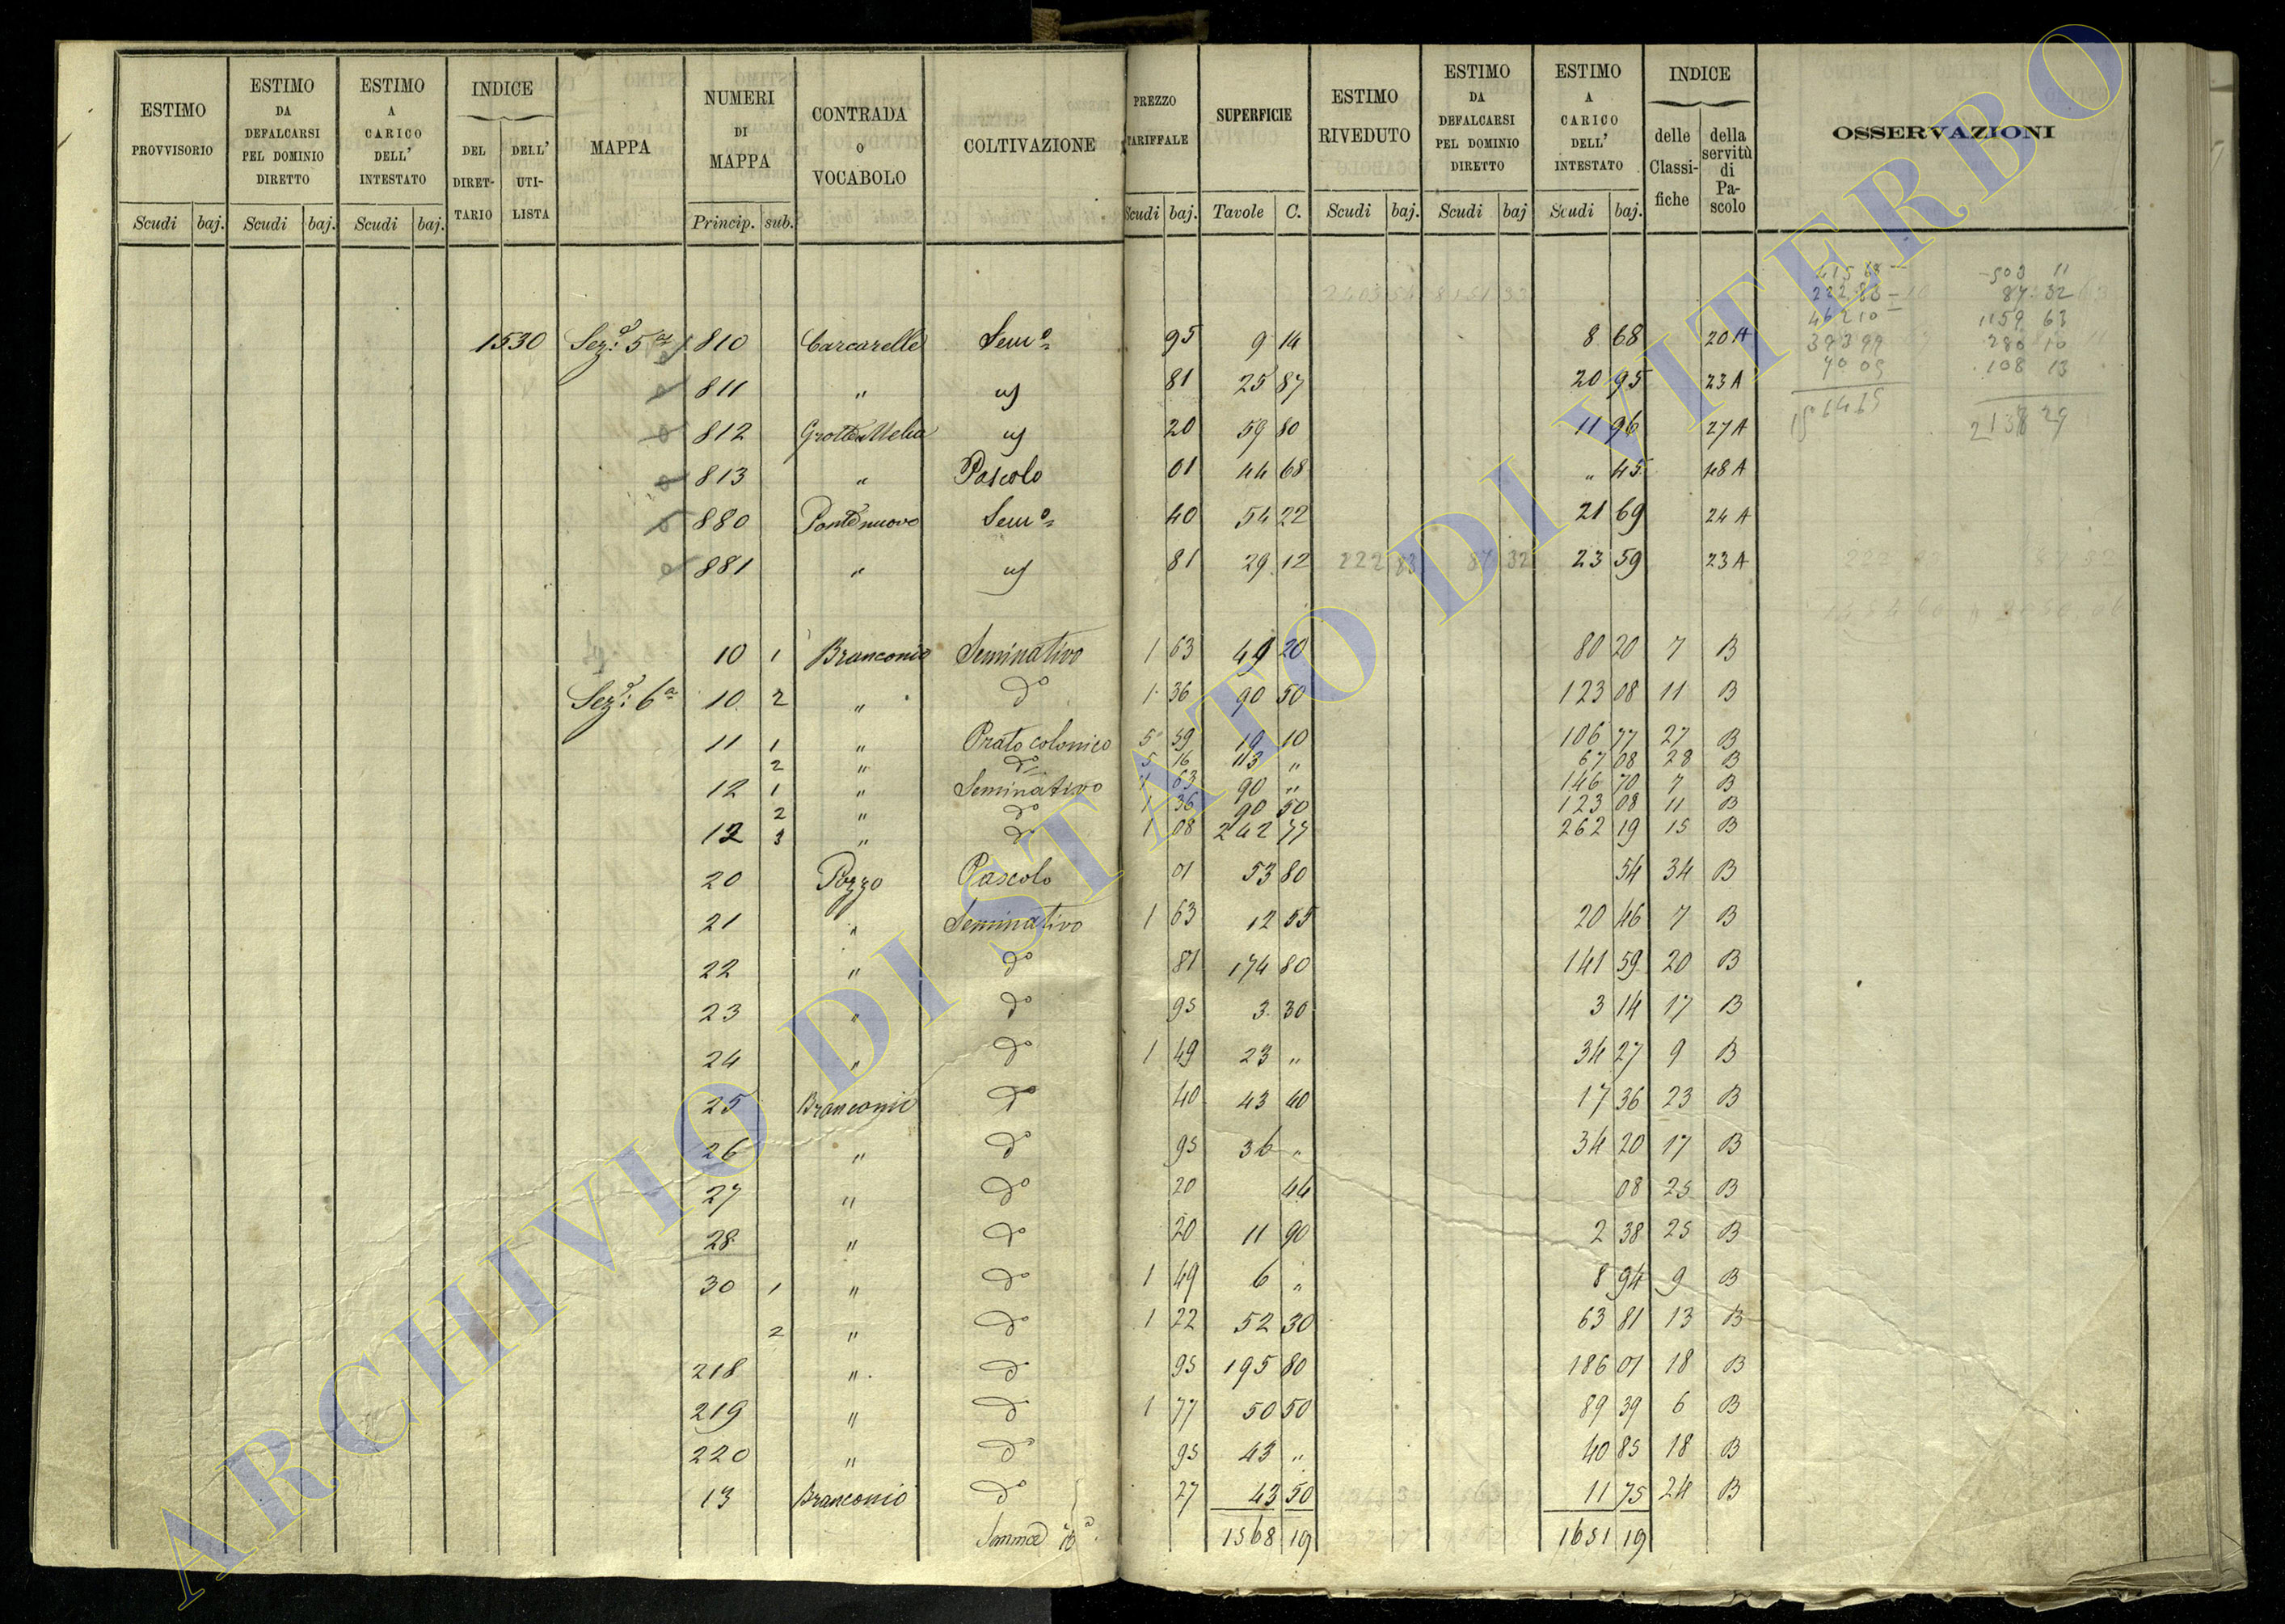 ESTIMO PROVVISORIO Scudi baj.
ESTIMO DA DEFALCARSI PEL DOMINIO DIRETTO Scudi baj.
ESTIMO A CARICO DELL' INTESTATO Scudi baj.
INDICE DEL DIRET- TARIO DELL' UTI- LISTA
MAPPA
NUMERI DI MAPPA Princip. sub.
CONTRADA O VOCABOLO
COLTIVAZIONE
PREZZO TARIFFALE Scudi baj.
SUPERFICIE Tavole C.
ESTIMO RIVEDUTO Scudi baj.
ESTIMO DA DEFALCARSI PEL DOMINIO DIRETTO Scudi baj
ESTIMO A CARICO DELL' INTESTATO Scudi baj.
INDICE delle Classi- fiche della servitù di Pa- scolo
OSSERVAZIONI
1530 Sez: 5a 810 Carcarelle Semo 95 9 14 8 68 20 A
811 " 81 25 87 20 95 23 A
812 Grotta Melia 20 59 80 11 96 27 A
813 " Pascolo 01 44 68 " 45 48 A
880 Ponte nuovo Semo 40 54 22 21 69 24 A
881 " 81 29 12 222 83 87 32 23 59 23 A
10 1 Branconio Seminativo 1 63 49 20 80 20 7 B
Sez: 6a 10 2 " do 1 36 90 50 123 08 11 B
11 1 " Prato colonico 5 59 19 10 106 77 27 B
2 " do 5 16 13 " 67 08 28 B
12 1 " Seminativo 1 63 90 " 146 70 7 B
2 " do 1 36 90 50 123 08 11 B
12 3 " do 1 08 242 77 262 19 15 B
20 Pozzo Pascolo 01 53 80 54 34 B
21 " Seminativo 1 63 12 55 20 46 7 B
22 " do 81 174 80 141 59 20 B
23 " do 95 3 30 3 14 17 B
24 " do 1 49 23 " 34 27 9 B
25 Branconio do 40 43 40 17 36 23 B
26 " do 95 36 " 34 20 17 B
27 " do 20 44 08 25 B
28 " do 20 11 90 2 38 25 B
30 1 " do 1 49 6 " 8 94 9 B
2 " do 1 22 52 30 63 81 13 B
218 " do 95 195 80 186 01 18 B
219 " do 1 77 50 50 89 39 6 B
220 " do 95 43 " 40 85 18 B
13 Branconio do 27 43 50 11 75 24 B
Somma 1568 19 1651 19
503 11
222 83 87 32
46210 1159 63
39399 280 10
7009 108 13
2138 29
ARCHIVIO DI STATO DI VITERBO